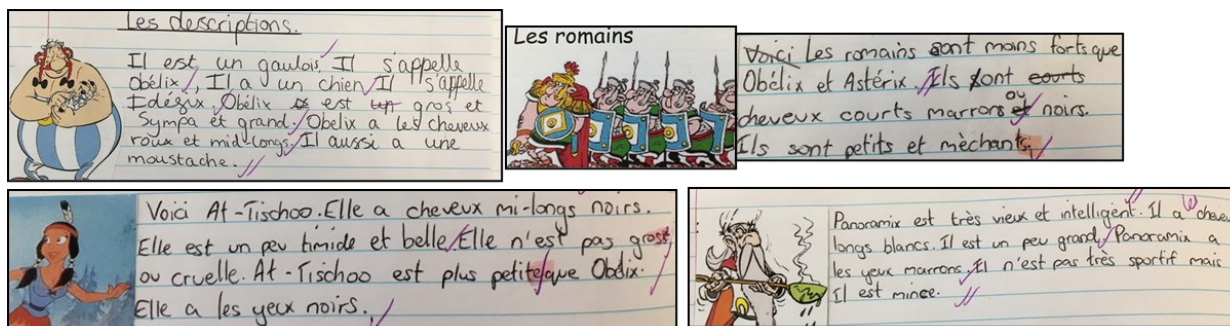 Les descriptions.
Il est un gaulois. Il s'appelle
Obélix, Il a un chien, Il s'appelle
Idéfix, Obélix est gros et
Sympa et grand, Obelix a les cheveux
roux et mid-longs, Il aussi a une
moustache.
Les romains
Voici Les romains sont moins forts que
Obélix et Astérix, Ils sont courts
ou
cheveux courts marrons et noirs.
Ils sont petits et mèchants.
Voici At-Tischoo. Elle a cheveux mi-longs noirs.
Elle est un peu timide et belle, Elle n'est pas grosse,
ou cruelle. At-Tischoo est plus petite que Obélix.
Elle a les yeux noirs.
Panoramix est très vieux et intelligent. Il a cheve
longs blancs. Il est un peu grand, Panoramix a
les yeux marrons, Il n'est pas très sportif mais
Il est mince.